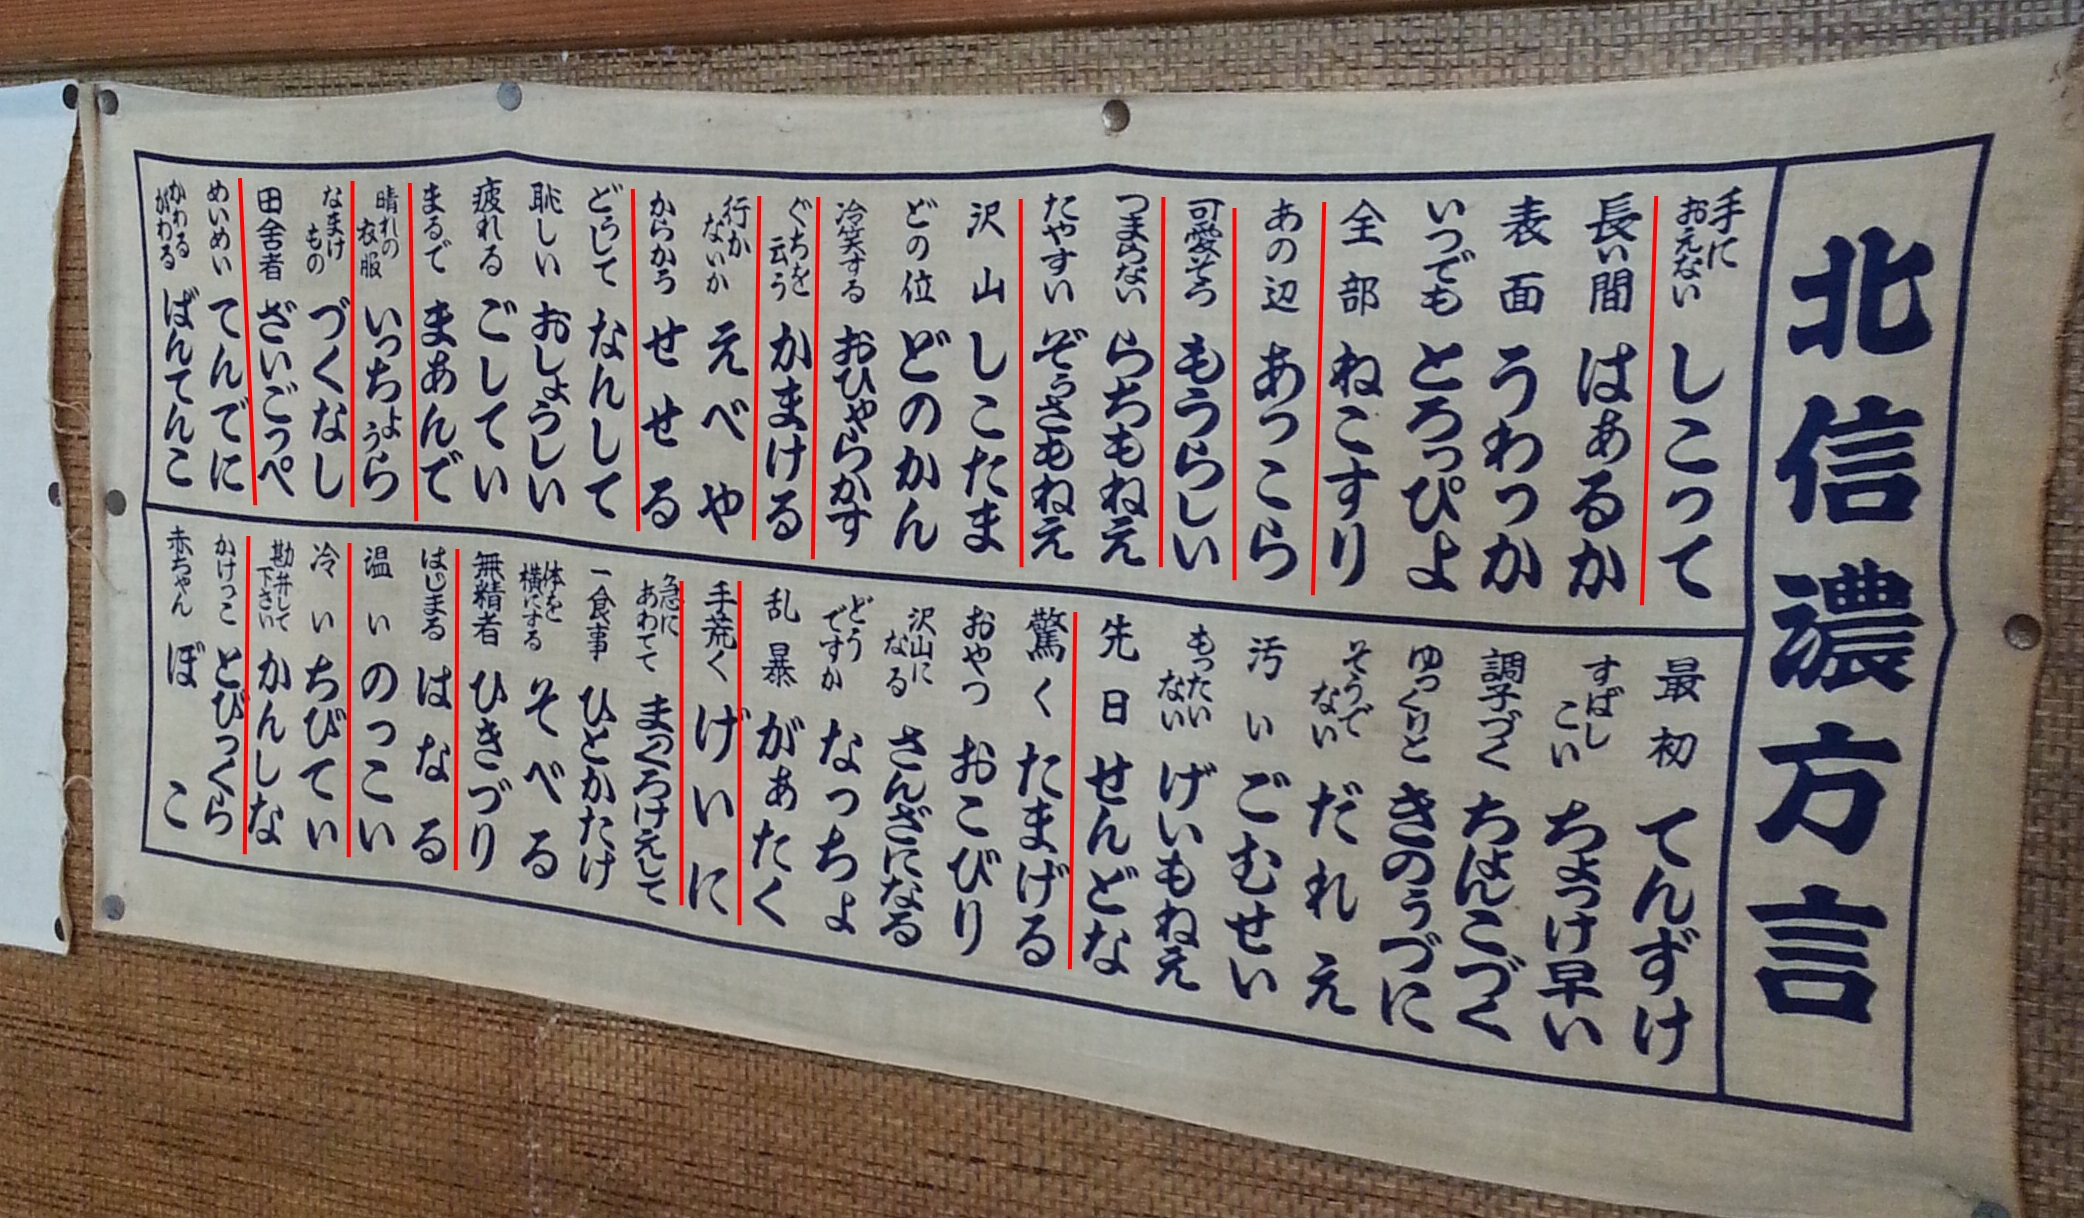 北信濃方言
手におえない しこって
長い間 はぁるか
表面 うわっか
いつでも とろっぴよ
全部 ねこすり
あの辺 あっこら
可愛そう もうらしい
つまらない らちもねえ
たやすい ぞうさもねえ
沢山 しこたま
どの位 どのかん
冷笑する おひゃらかす
ぐちを云う かまける
行かないか えべや
からかう せせる
どうして なんして
恥しい おしょうしい
疲れる ごしてい
まるで まあんで
晴れの衣服 いっちょうら
なまけもの づくなし
田舎者 ざいごっぺ
めいめい てんでに
かわるがわる ばんてんこ
最初 てんずけ
すばしこい ちょっけ早い
調子づく ちょんこづく
ゆっくりと きのうづに
そうでない だれえ
汚い ごむせい
もったいない げいもねえ
先日 せんどな
驚く たまげる
おやつ おこびり
沢山になる さんざになる
どうですか なっちょ
乱暴 がぁたく
手荒く げいに
急にあわてて まくろけえして
一食事 ひとかたけ
体を横にする そべる
無精者 ひきづり
はじまる はなる
温い のっこい
冷い ちびてい
勘弁して下さい かんしな
かけっこ とびっくら
赤ちゃん ぼこ